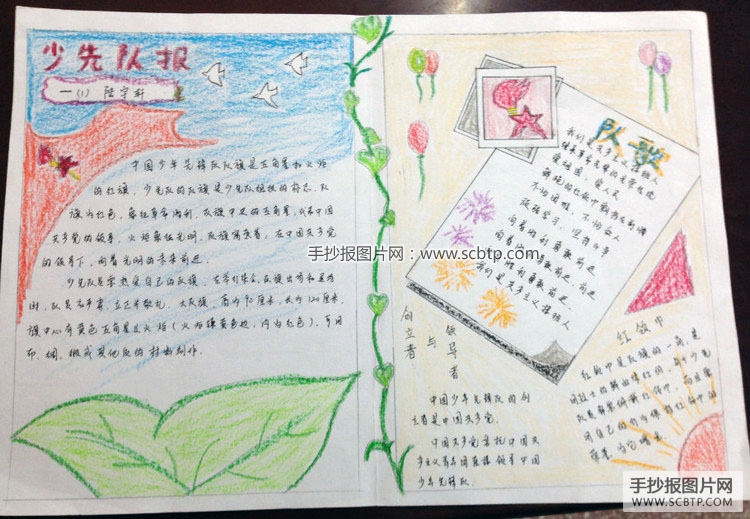 少先队报
一(1) 陆宇轩
中国少年先锋队队旗是五角星和火炬
的红旗，少先队的队旗是少先队组织的标志，队
旗为红色，象征革命胜利，队旗中央的五角星，代表中国
共产党的领导，火炬象征光明，队旗指引着，在中国共产党
的领导下，向着光明的未来前进。
少先队员要热爱自己的队旗，在举行集会，队旗出场和退场
时，队员要肃立，立正并敬礼。大队旗，高为90厘米，长为120厘米，
旗中心有黄色五角星及火炬（火炬镶黄色边，内为红色），可用
布、绸、缎或其他面料制作。
队歌
我们是共产主义接班人
继承革命先辈的光荣传统
爱祖国，爱人民
鲜艳的红领巾飘扬在前胸
不怕困难，不怕敌人
顽强学习，坚决斗争
向着胜利勇敢前进
向着胜利勇敢前进，前进
向着胜利勇敢前进
我们是共产主义接班人
手抄报图片网：www.scbtp.com
创立者
与
领导者
中国少年先锋队的创
立者是中国共产党。
中国共产党委托中国共
产主义青年团直接领导中国
少年先锋队。
红领巾
红领巾是队旗的一角，是
用烈士的鲜血染红的，每个少先
队员都要佩戴红领巾，
用自己的行动为红领巾增
手抄报图片网
WWW.SCBTP.COM